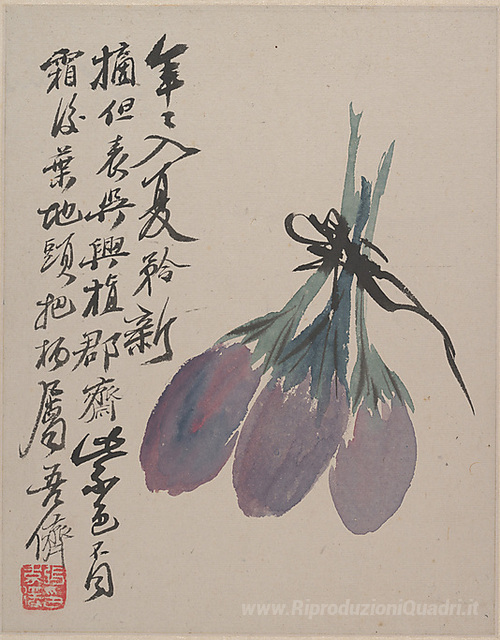 年〻入夏矜新
摘但表興與植郡齋紫色不同
霜後葉地頭把柄屬吾儕
www.RiproduzioniQuadri.it